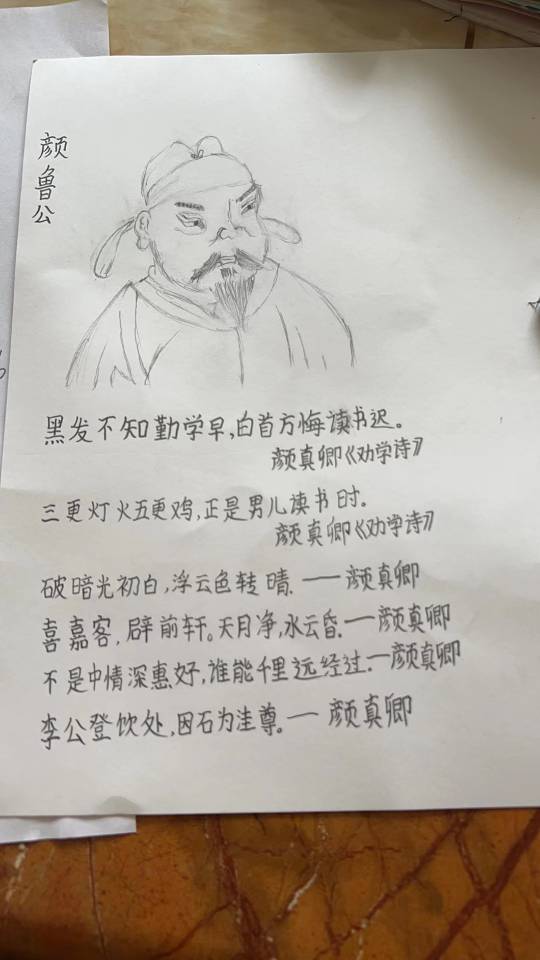 颜鲁公
黑发不知勤学早,白首方悔读书迟。
颜真卿《劝学诗》
三更灯火五更鸡,正是男儿读书时。
颜真卿《劝学诗》
破暗光初白,浮云色转晴.——颜真卿
喜嘉客,辟前轩。天月净,水云昏.——颜真卿
不是中情深惠好,谁能千里远经过.——颜真卿
李公登饮处,因石为洼尊。——颜真卿